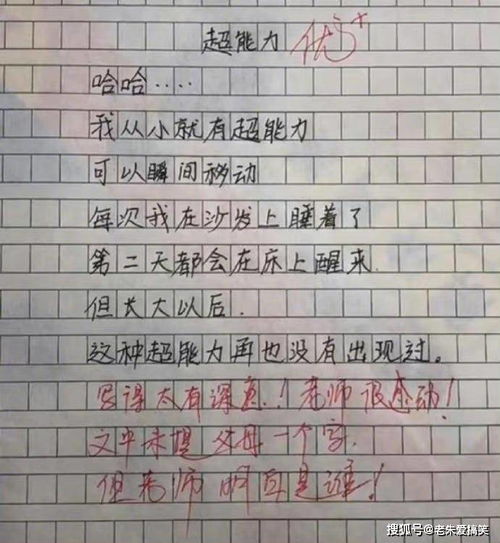 超能力 优+
哈哈....
我从小就有超能力
可以瞬间移动
每次我在沙发上睡着了
第二天都会在床上醒来.
但长大以后.
这种超能力再也没有出现过。
写得太有深意.！老师很感动！
文中未提父母一个字.
但老师明白是谁！
搜狐号@老朱爱搞笑